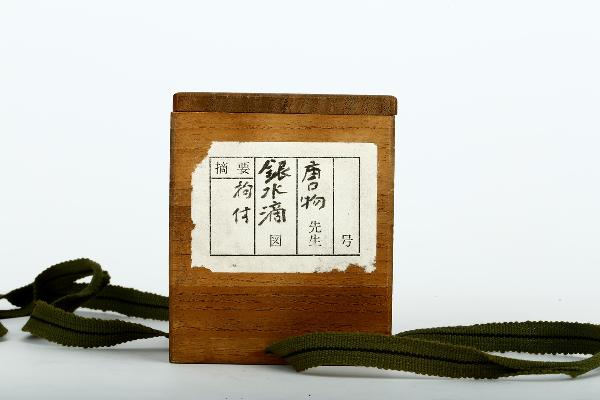 号
唐物先生
銀水滴図
摘要
拘付